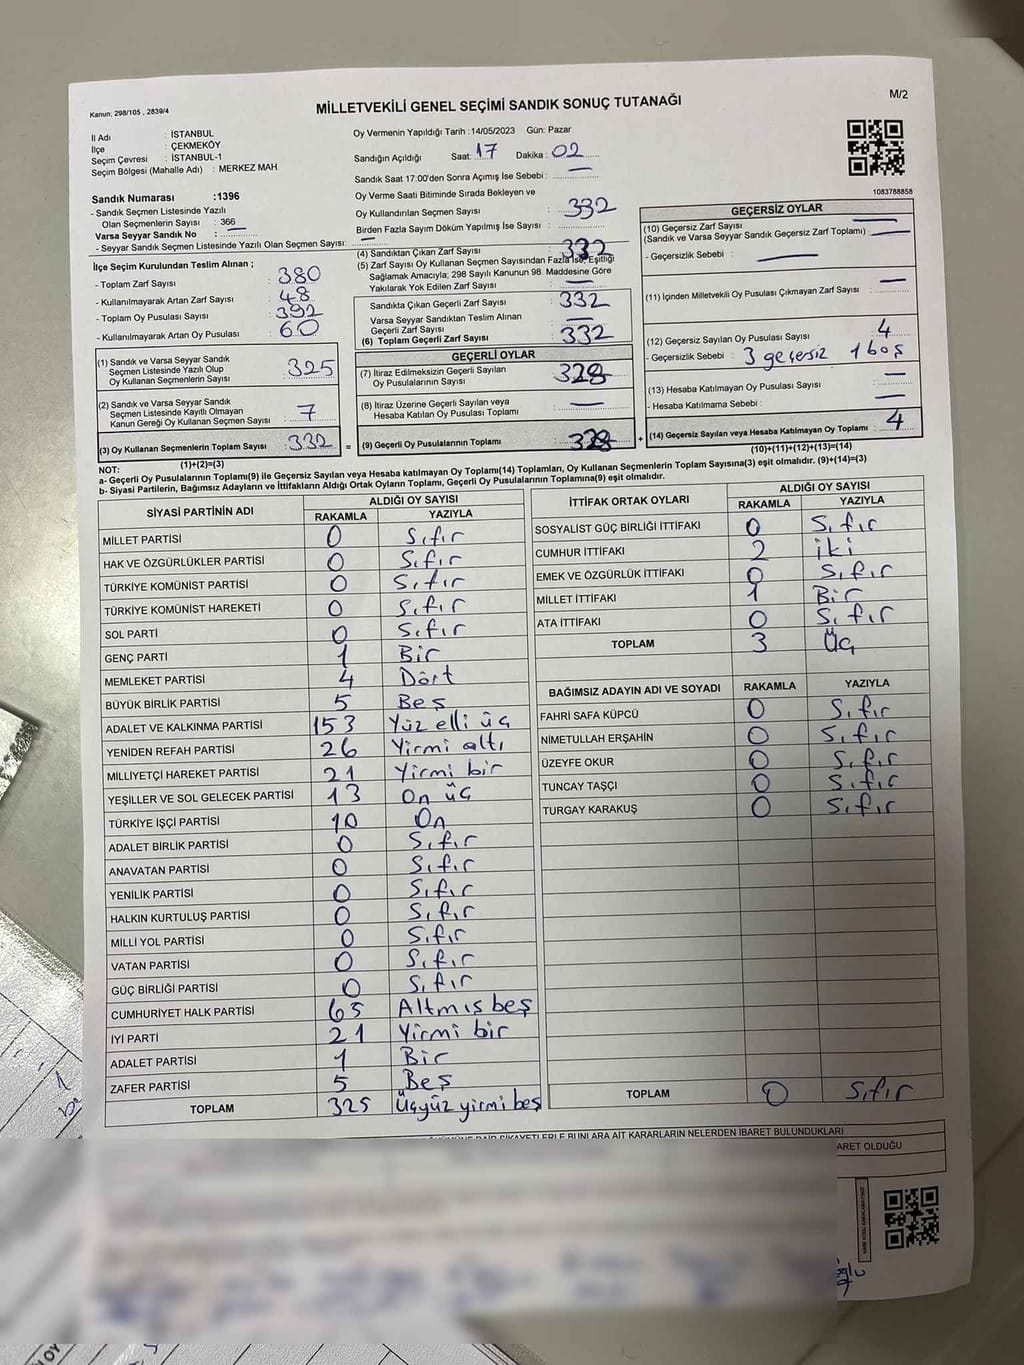 Kanun; 298/105 , 2839/4
MİLLETVEKİLİ GENEL SEÇİMİ SANDIK SONUÇ TUTANAĞI
M/2
İl Adı : İSTANBUL
İlçe : ÇEKMEKÖY
Seçim Çevresi : İSTANBUL-1
Seçim Bölgesi (Mahalle Adı) : MERKEZ MAH.
Oy Vermenin Yapıldığı Tarih :14/05/2023 Gün: Pazar
Sandığın Açıldığı Saat: 17 Dakika : 02
Sandık Saat 17:00'den Sonra Açımış İse Sebebi : —
1083788858
Sandık Numarası :1396
- Sandık Seçmen Listesinde Yazılı
Olan Seçmenlerin Sayısı : 366
Varsa Seyyar Sandık No : —
- Seyyar Sandık Seçmen Listesinde Yazılı Olan Seçmen Sayısı: —
Oy Verme Saati Bitiminde Sırada Bekleyen ve
Oy Kullandırılan Seçmen Sayısı : 332
Birden Fazla Sayım Döküm Yapılmış İse Sayısı : —
İlçe Seçim Kurulundan Teslim Alınan ;
- Toplam Zarf Sayısı : 380
- Kullanılmayarak Artan Zarf Sayısı : 48
- Toplam Oy Pusulası Sayısı : 392
- Kullanılmayarak Artan Oy Pusulası : 60
(1) Sandık ve Varsa Seyyar Sandık
Seçmen Listesinde Yazılı Olup
Oy Kullanan Seçmenlerin Sayısı : 325
(2) Sandık ve Varsa Seyyar Sandık
Seçmen Listesinde Kayıtlı Olmayan
Kanun Gereği Oy Kullanan Seçmen Sayısı : 7
(3) Oy Kullanan Seçmenlerin Toplam Sayısı : 332 =
(1)+(2)=(3)
(4) Sandıktan Çıkan Zarf Sayısı : 332
(5) Zarf Sayısı Oy Kullanan Seçmen Sayısından Fazla İse, Eşitliği
Sağlamak Amacıyla; 298 Sayılı Kanunun 98. Maddesine Göre
Yakılarak Yok Edilen Zarf Sayısı : —
Sandıkta Çıkan Geçerli Zarf Sayısı : 332
Varsa Seyyar Sandıktan Teslim Alınan
Geçerli Zarf Sayısı : —
(6) Toplam Geçerli Zarf Sayısı : 332
GEÇERLİ OYLAR
(7) İtiraz Edilmeksizin Geçerli Sayılan
Oy Pusulalarının Sayısı : 328
(8) İtiraz Üzerine Geçerli Sayılan veya
Hesaba Katılan Oy Pusulası Toplamı : —
(9) Geçerli Oy Pusulalarının Toplamı : 328 +
GEÇERSİZ OYLAR
(10) Geçersiz Zarf Sayısı : —
(Sandık ve Varsa Seyyar Sandık Geçersiz Zarf Toplamı) : —
- Geçersizlik Sebebi : —
(11) İçinden Milletvekili Oy Pusulası Çıkmayan Zarf Sayısı : —
(12) Geçersiz Sayılan Oy Pusulası Sayısı : 4
- Geçersizlik Sebebi : 3 geçersiz 1 boş
(13) Hesaba Katılmayan Oy Pusulası Sayısı : —
- Hesaba Katılmama Sebebi : —
(14) Geçersiz Sayılan veya Hesaba Katılmayan Oy Toplamı : 4
(10)+(11)+(12)+(13)=(14)
NOT:
a- Geçerli Oy Pusulalarının Toplamı(9) ile Geçersiz Sayılan veya Hesaba katılmayan Oy Toplamı(14) Toplamları, Oy Kullanan Seçmenlerin Toplam Sayısına(3) eşit olmalıdır. (9)+(14)=(3)
b- Siyasi Partilerin, Bağımsız Adayların ve İttifakların Aldığı Ortak Oyların Toplamı, Geçerli Oy Pusulalarının Toplamına(9) eşit olmalıdır.
SİYASİ PARTİNİN ADI ALDIĞI OY SAYISI
RAKAMLA YAZIYLA
MİLLET PARTİSİ 0 Sıfır
HAK VE ÖZGÜRLÜKLER PARTİSİ 0 Sıfır
TÜRKİYE KOMÜNİST PARTİSİ 0 Sıfır
TÜRKİYE KOMÜNİST HAREKETİ 0 Sıfır
SOL PARTİ 0 Sıfır
GENÇ PARTİ 1 Bir
MEMLEKET PARTİSİ 4 Dört
BÜYÜK BİRLİK PARTİSİ 5 Beş
ADALET VE KALKINMA PARTİSİ 153 Yüz elli üç
YENİDEN REFAH PARTİSİ 26 Yirmi altı
MİLLİYETÇİ HAREKET PARTİSİ 21 Yirmi bir
YEŞİLLER VE SOL GELECEK PARTİSİ 13 On üç
TÜRKİYE İŞÇİ PARTİSİ 10 On
ADALET BİRLİK PARTİSİ 0 Sıfır
ANAVATAN PARTİSİ 0 Sıfır
YENİLİK PARTİSİ 0 Sıfır
HALKIN KURTULUŞ PARTİSİ 0 Sıfır
MİLLİ YOL PARTİSİ 0 Sıfır
VATAN PARTİSİ 0 Sıfır
GÜÇ BİRLİĞİ PARTİSİ 0 Sıfır
CUMHURİYET HALK PARTİSİ 65 Altmış beş
İYİ PARTİ 21 Yirmi bir
ADALET PARTİSİ 1 Bir
ZAFER PARTİSİ 5 Beş
TOPLAM 325 Üçyüz yirmi beş
İTTİFAK ORTAK OYLARI ALDIĞI OY SAYISI
RAKAMLA YAZIYLA
SOSYALİST GÜÇ BİRLİĞİ İTTİFAKI 0 Sıfır
CUMHUR İTTİFAKI 2 iki
EMEK VE ÖZGÜRLÜK İTTİFAKI 0 Sıfır
MİLLET İTTİFAKI 1 Bir
ATA İTTİFAKI 0 Sıfır
TOPLAM 3 Üç
BAĞIMSIZ ADAYIN ADI VE SOYADI RAKAMLA YAZIYLA
FAHRİ SAFA KÜPCÜ 0 Sıfır
NİMETULLAH ERŞAHİN 0 Sıfır
ÜZEYFE OKUR 0 Sıfır
TUNCAY TAŞÇI 0 Sıfır
TURGAY KARAKUŞ 0 Sıfır
TOPLAM 0 Sıfır
ŞİKAYETLERLE BUNLARA AİT KARARLARIN NELERDEN İBARET BULUNDUKLARI
ARET OLDUĞU